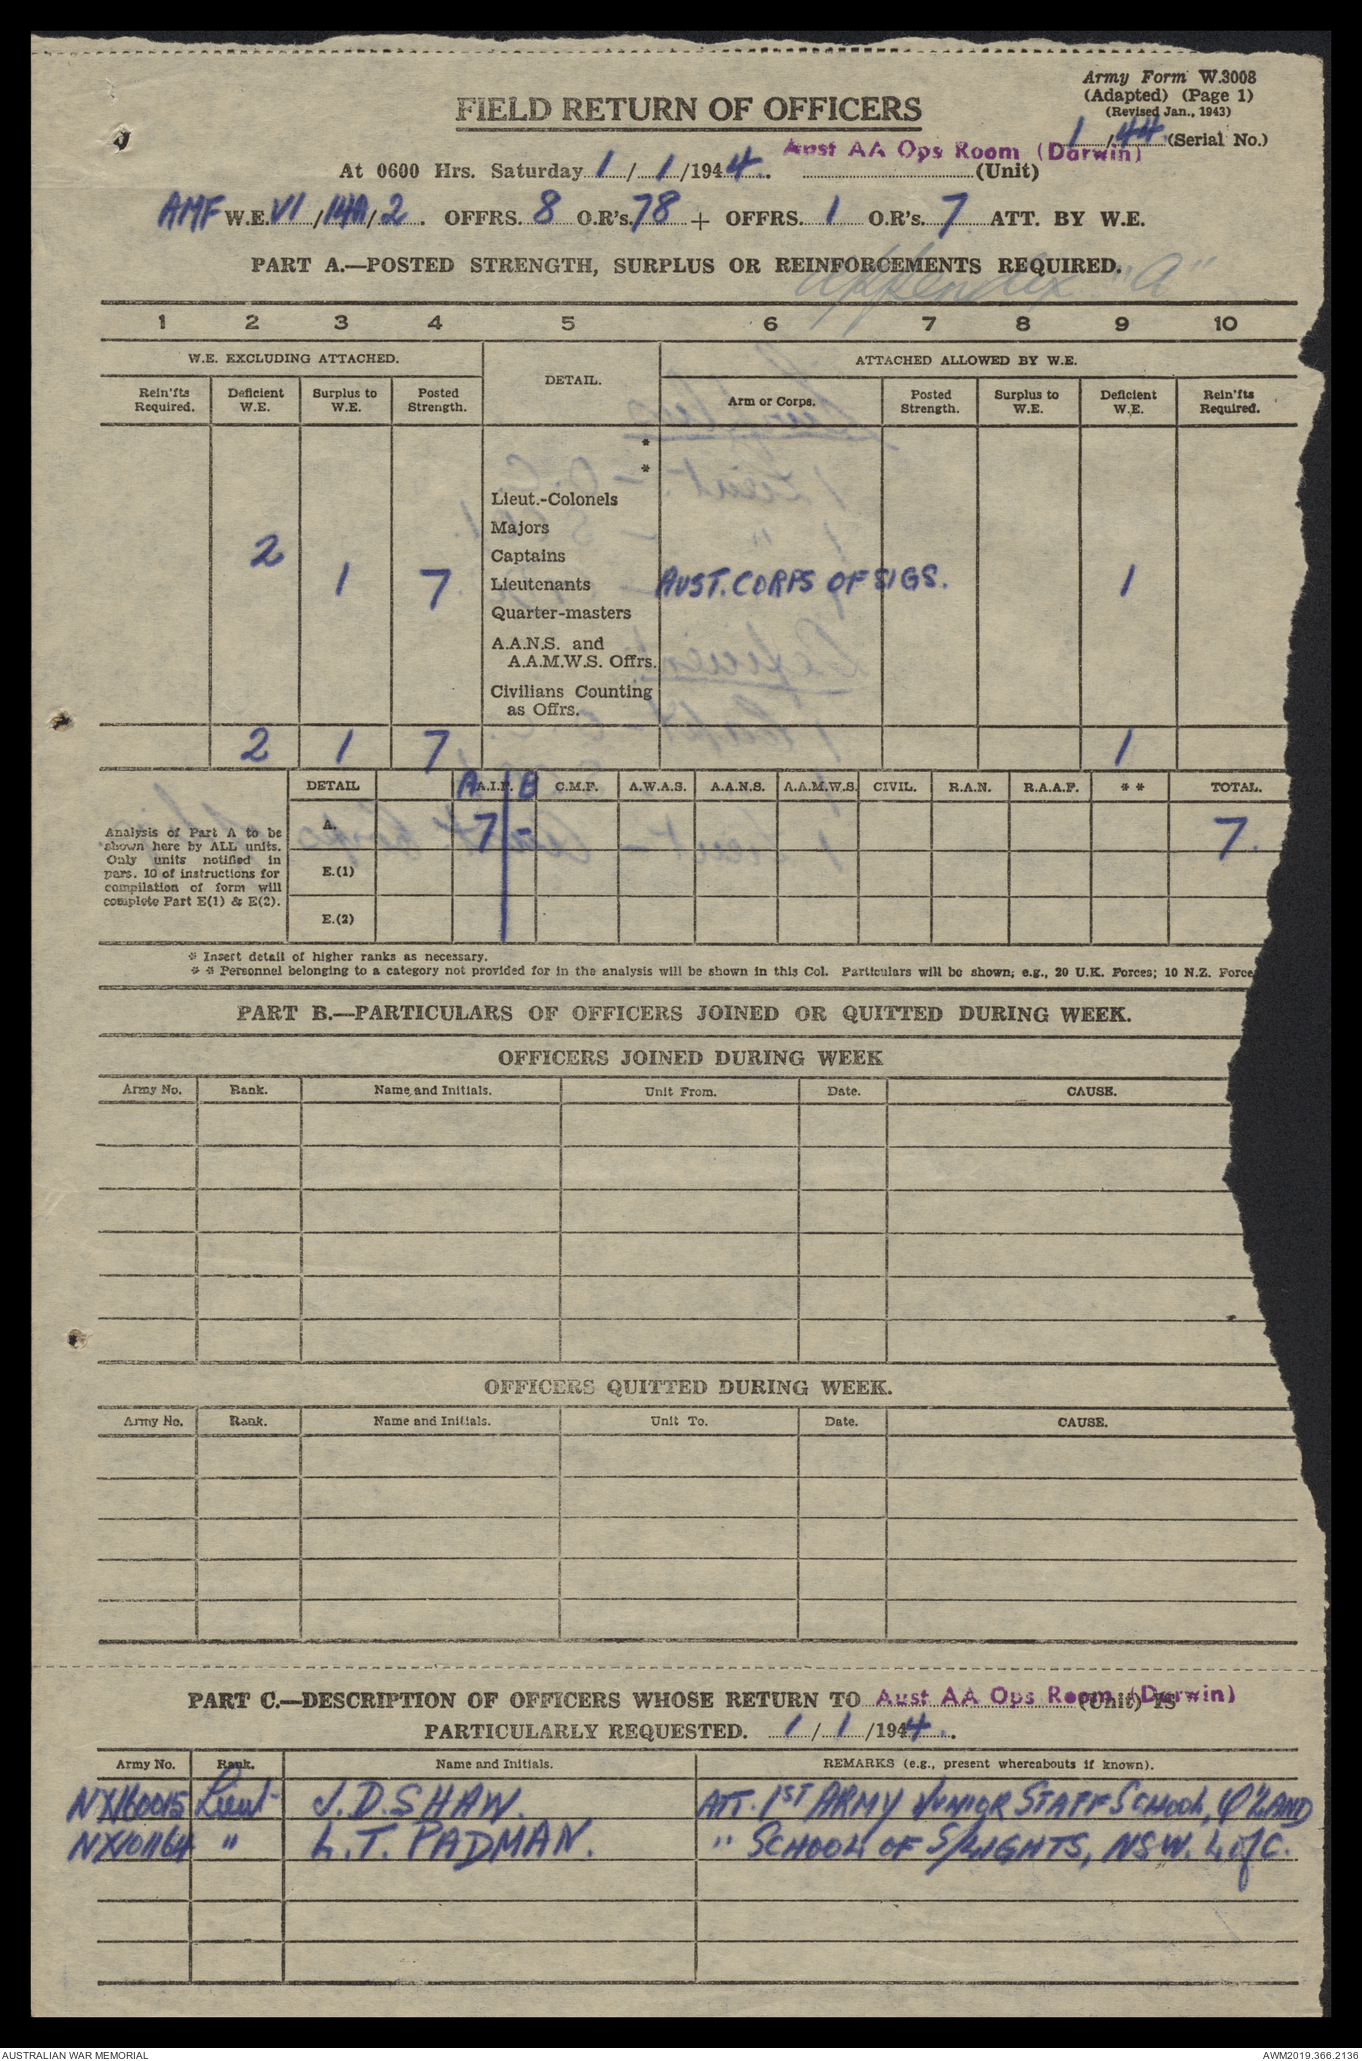 Army Form W.3008
(Adapted) (Page 1)
(Revised Jan., 1943)
FIELD RETURN OF OFFICERS
1/44 (Serial No.)
Aust AA Ops Room (Darwin)
At 0600 Hrs. Saturday 1/1/1944. (Unit)
AMF W.E. VI/14A/2. OFFRS. 8 O.R's. 78 + OFFRS. 1 O.R's. 7 ATT. BY W.E.
PART A.—POSTED STRENGTH, SURPLUS OR REINFORCEMENTS REQUIRED.
Appendix "A"
1 2 3 4 5 6 7 8 9 10
W.E. EXCLUDING ATTACHED. DETAIL. ATTACHED ALLOWED BY W.E.
Rein'fts Required. Deficient W.E. Surplus to W.E. Posted Strength. Arm or Corps. Posted Strength. Surplus to W.E. Deficient W.E. Rein'fts Required.
*
*
Lieut.-Colonels
Majors
2 Captains
1 7 Lieutenants AUST. CORPS OF SIGS. 1
Quarter-masters
A.A.N.S. and
A.A.M.W.S. Offrs.
Civilians Counting
as Offrs.
2 1 7 1
DETAIL A A.I.F. B C.M.F. A.W.A.S. A.A.N.S. A.A.M.W.S. CIVIL. R.A.N. R.A.A.F. * * TOTAL.
Analysis of Part A to be
shown here by ALL units.
Only units notified in
para. 10 of instructions for
compilation of form will
complete Part E(1) & E(2).
A. 7 - 7.
E.(1)
E.(2)
* Insert detail of higher ranks as necessary.
* * Personnel belonging to a category not provided for in the analysis will be shown in this Col. Particulars will be shown; e.g., 20 U.K. Forces; 10 N.Z. Force
PART B.—PARTICULARS OF OFFICERS JOINED OR QUITTED DURING WEEK.
OFFICERS JOINED DURING WEEK
Army No. Rank. Name and Initials. Unit From. Date. CAUSE.
OFFICERS QUITTED DURING WEEK.
Army No. Rank. Name and Initials. Unit To. Date. CAUSE.
PART C.—DESCRIPTION OF OFFICERS WHOSE RETURN TO Aust AA Ops Room (Darwin) (Unit) IS
PARTICULARLY REQUESTED. 1/1/1944.
Army No. Rank. Name and Initials. REMARKS (e.g., present whereabouts if known).
NX160015 Lieut J. D. SHAW. ATT. 1ST ARMY JUNIOR STAFF SCHOOL, Q'LAND
NX101164 " L. T. PADMAN. " SCHOOL OF S/LIGHTS, NSW. L of C.
AUSTRALIAN WAR MEMORIAL AWM2019.366.2136